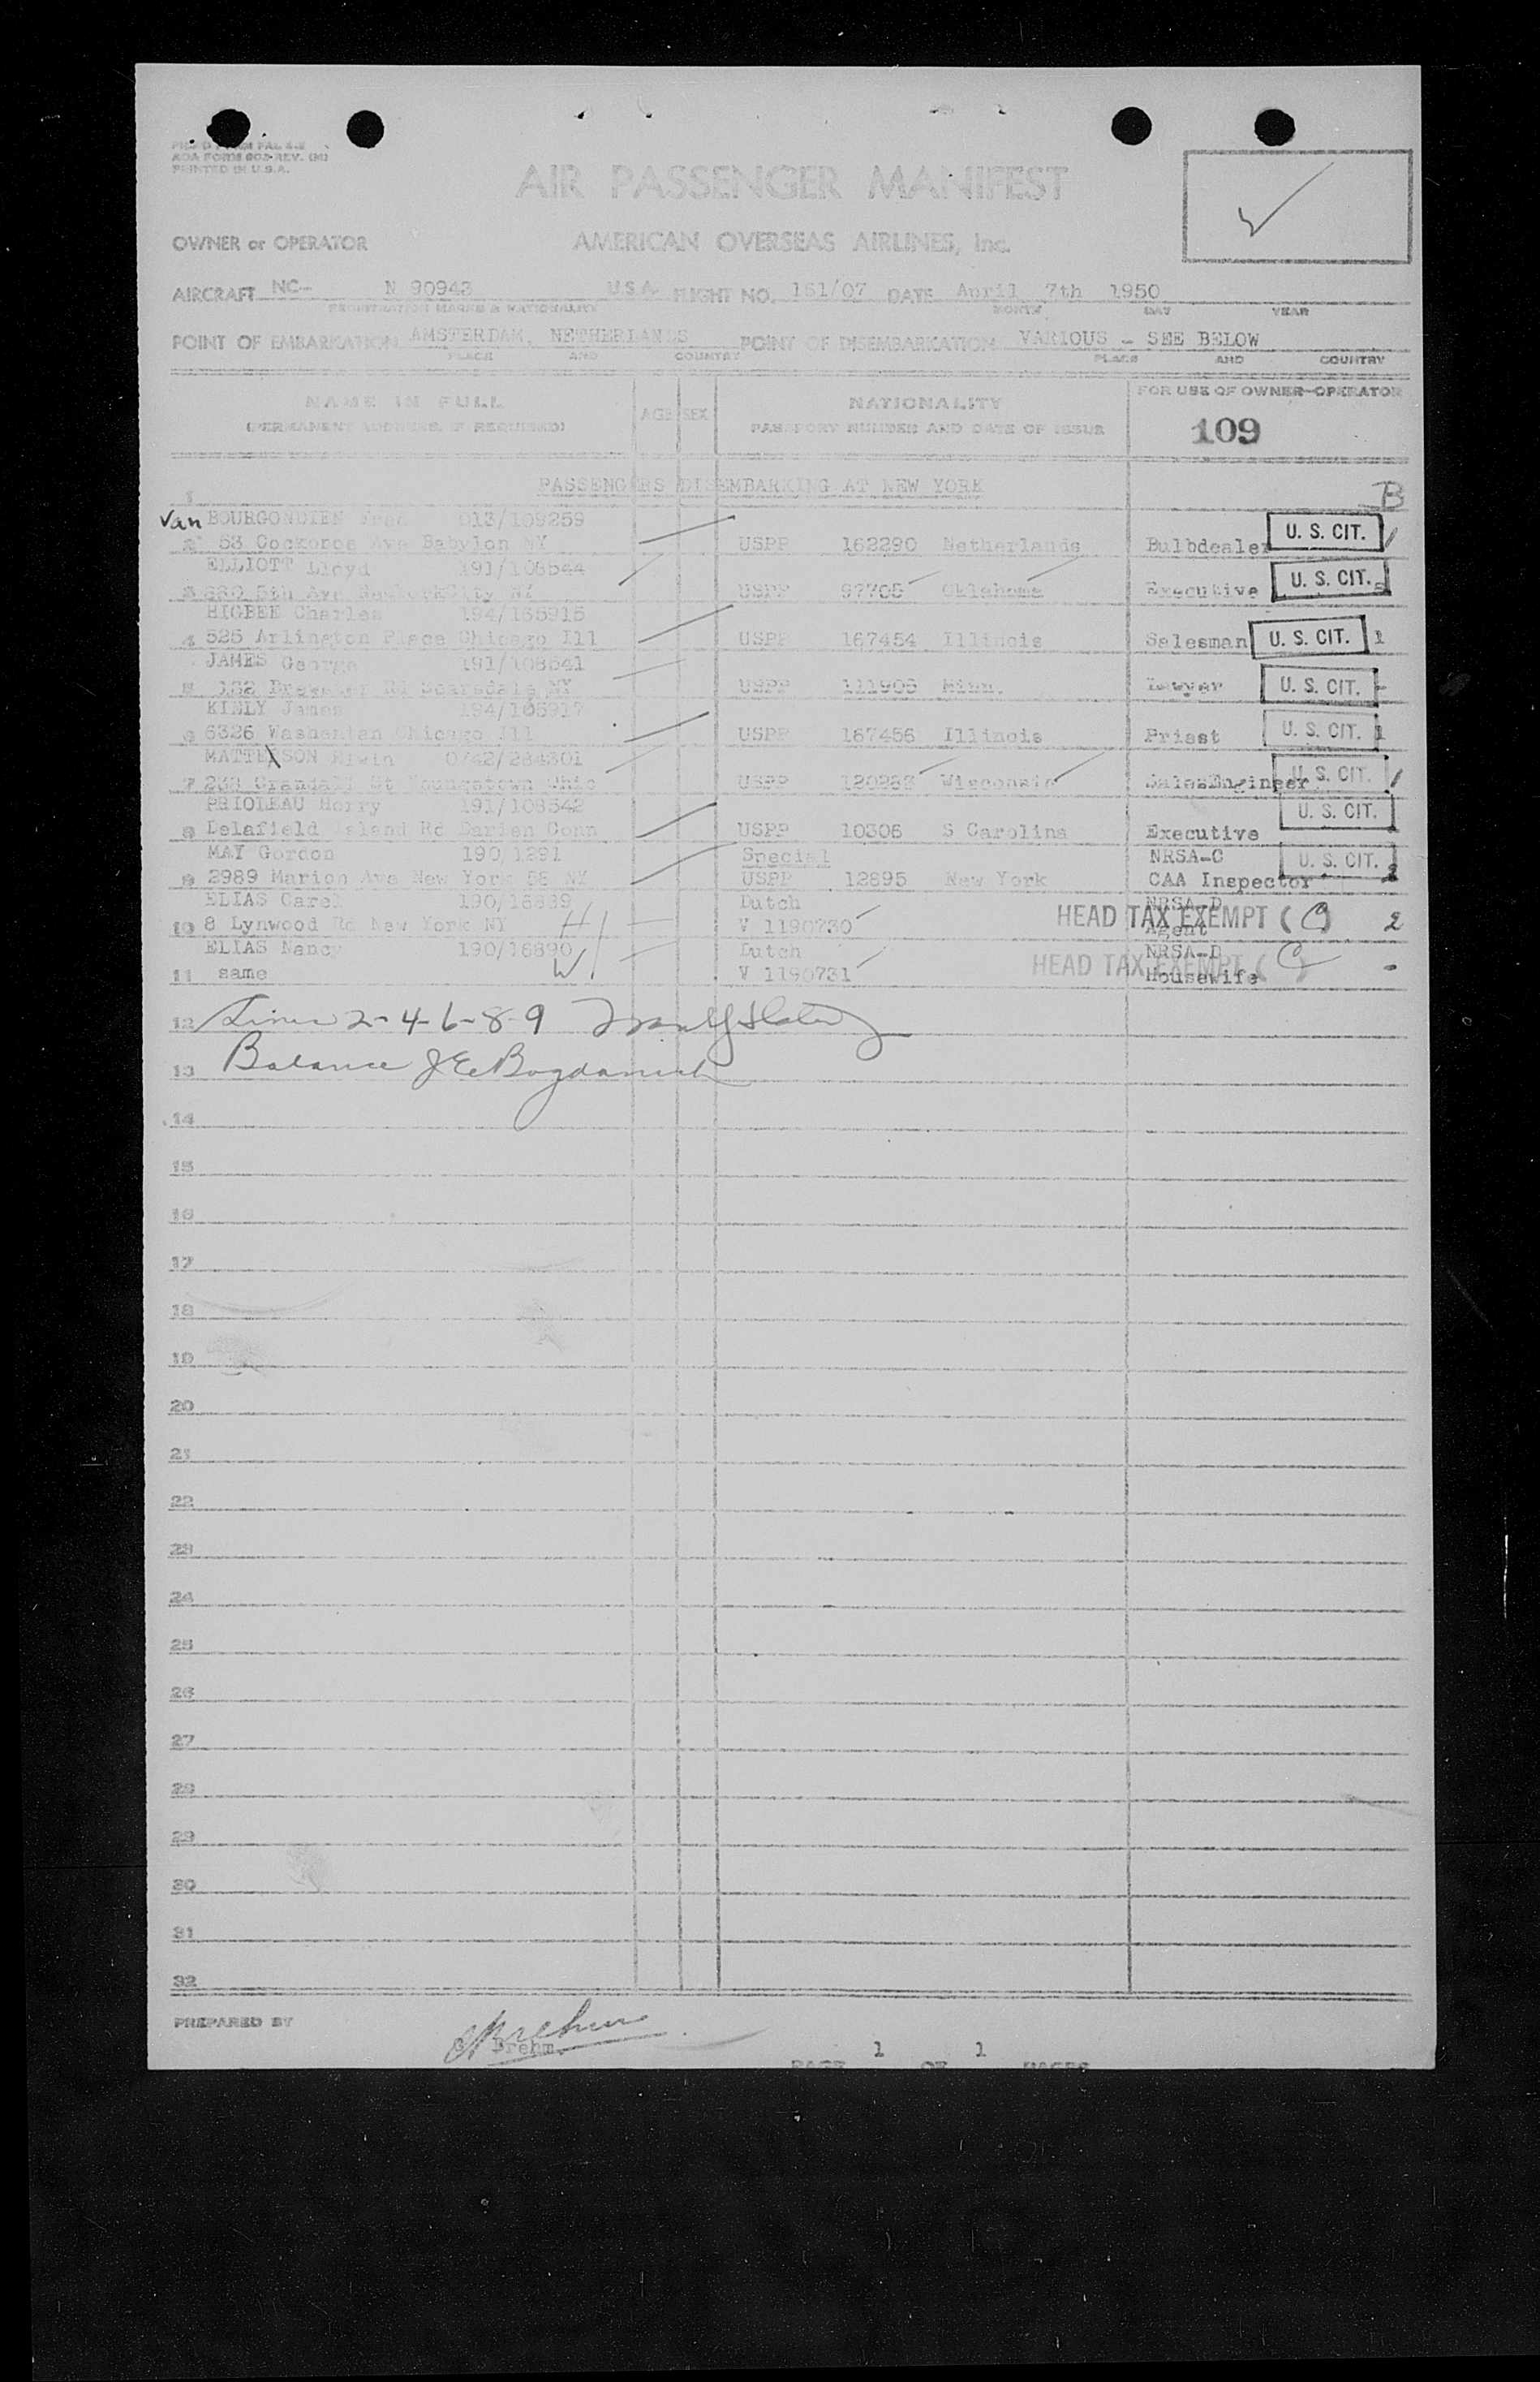 AOA FORM 803-REV.
PRINTED IN U.S.A.
AIR PASSENGER MANIFEST
OWNER or OPERATOR AMERICAN OVERSEAS AIRLINES, Inc.
AIRCRAFT NC- N 90943 U.S.A. FLIGHT NO. 161/07 DATE April 7th 1950
REGISTRATION MARKS & NATIONALITY MONTH DAY YEAR
POINT OF EMBARKATION AMSTERDAM, NETHERLANDS POINT OF DISEMBARKATION VARIOUS - SEE BELOW
PLACE AND COUNTRY PLACE AND COUNTRY
NAME IN FULL AGE SEX NATIONALITY FOR USE OF OWNER-OPERATOR
(PERMANENT ADDRESS, IF REQUIRED) PASSPORT NUMBER AND DATE OF ISSUE 109
1 PASSENGERS DISEMBARKING AT NEW YORK B
Van BOURGONDIEN 013/109259
2 53 Ave Babylon NY USPP 162290 Netherlands Bulbdealer U. S. CIT.
ELLIOTT Lloyd 191/108544
3 5th Ave NewYorkCity NY USPP 97705 Oklahoma Executive U. S. CIT.
HIGBEE Charles 194/165915
4 525 Arlington Place Chicago Ill USPP 167454 Illinois Salesman U. S. CIT. 1
JAMES George 191/108541
5 Brewster Rd Scarsdale NY USPP 111906 Minn. Lawyer U. S. CIT. -
KIELY James 194/165917
6 6326 Washentan Chicago Ill USPP 167456 Illinois Priest U. S. CIT. 1
MATTESON 0742/284301
7 Crandall St Youngstown Ohio USPP Wisconsin SalesEngineer U. S. CIT.
PRIOLEAU Horry 191/108542
8 Delafield Island Rd Darien Conn USPP 10306 S Carolina Executive U. S. CIT.
MAY Gordon 190/1291 Special NRSA-C
9 2989 Marion Ave New York 58 NY USPP 12895 New York CAA Inspector U. S. CIT. 2
ELIAS Carel 190/16889 Dutch NRSA-D
10 8 Lynwood Rd New York NY H V 1190730 Agent HEAD TAX EXEMPT (C) 2
ELIAS Nancy 190/16890 Dutch NRSA-D
11 same W V 1190731 Housewife HEAD TAX EXEMPT (C) -
12 Lines 2-4-6-8-9
13 Balance J E Bogdanich
14
15
16
17
18
19
20
21
22
23
24
25
26
27
28
29
30
31
32
PREPARED BY Brehm
PAGE 1 OF 1 PAGES